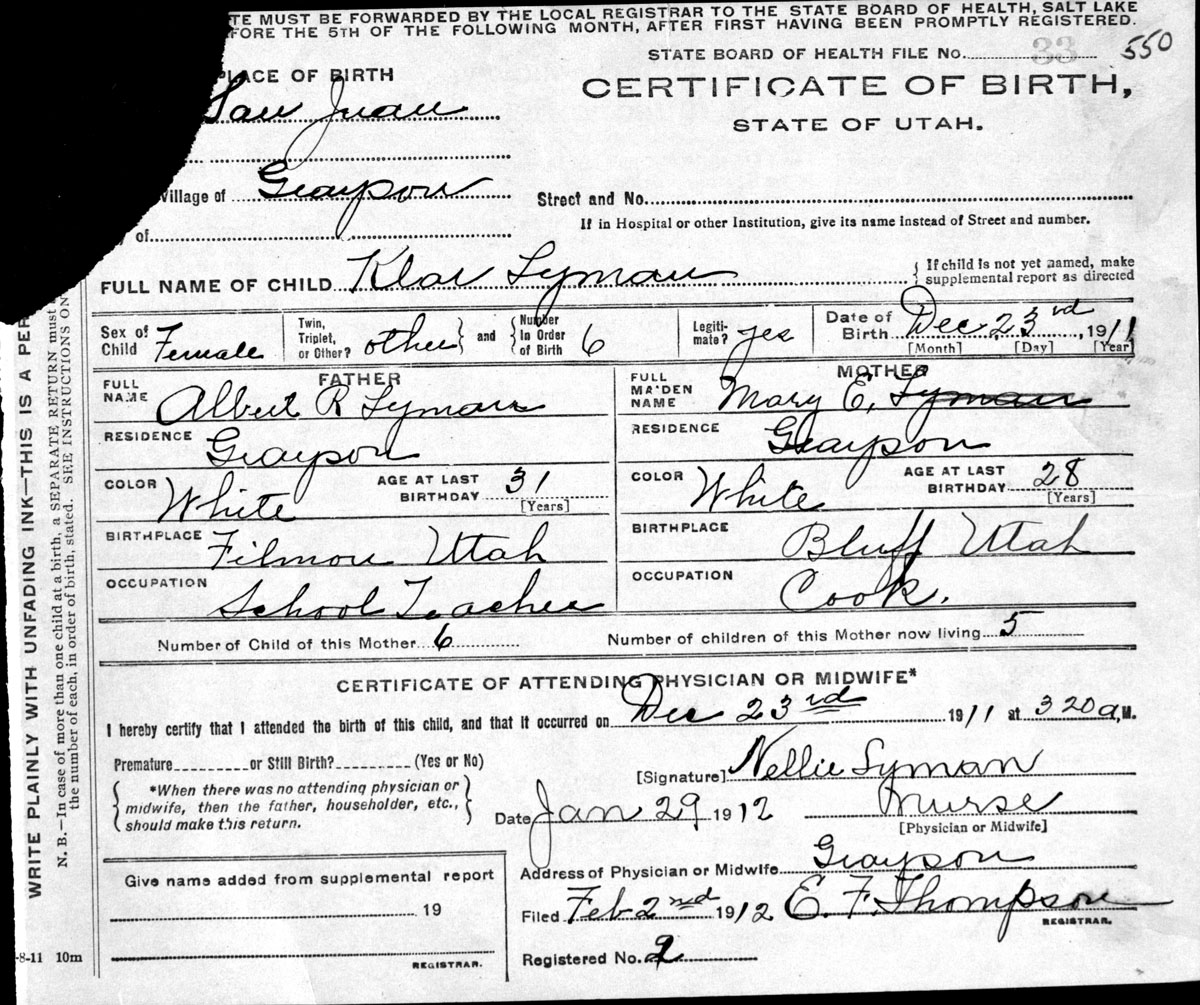 TE MUST BE FORWARDED BY THE LOCAL REGISTRAR TO THE STATE BOARD OF HEALTH, SALT LAKE
FORE THE 5TH OF THE FOLLOWING MONTH, AFTER FIRST HAVING BEEN PROMPTLY REGISTERED.
STATE BOARD OF HEALTH FILE No. 33 550
PLACE OF BIRTH
CERTIFICATE OF BIRTH,
San Juan
STATE OF UTAH.
Village of Grayson
Street and No.
of
If in Hospital or other Institution, give its name instead of Street and number.
FULL NAME OF CHILD Klar Lyman { If child is not yet named, make supplemental report as directed
Sex of Child Female
Twin, Triplet, or Other? other } and { Number In Order of Birth 6
Legiti- mate? yes
Date of Birth Dec 23rd, 1911
[Month] [Day] [Year]
FATHER
FULL NAME Albert R Lyman
MOTHER
FULL MAIDEN NAME Mary E, Lyman
RESIDENCE Grayson
RESIDENCE Grayson
COLOR White AGE AT LAST BIRTHDAY 31 [Years]
COLOR White AGE AT LAST BIRTHDAY 28 [Years]
BIRTHPLACE Filmon Utah
BIRTHPLACE Bluff Utah
OCCUPATION School Teacher
OCCUPATION Cook.
Number of Child of this Mother 6 Number of children of this Mother now living 5
CERTIFICATE OF ATTENDING PHYSICIAN OR MIDWIFE*
I hereby certify that I attended the birth of this child, and that it occurred on Dec 23rd 1911 at 3 20 a, M.
Premature or Still Birth? (Yes or No)
{ *When there was no attending physician or
midwife, then the father, householder, etc.,
should make this return. }
[Signature] Nellie Lyman
Date Jan 29 1912 Nurse
[Physician or Midwife]
Address of Physician or Midwife Grayson
Give name added from supplemental report
19
REGISTRAR.
Filed Feb 2nd 1912 E. F. Thompson
REGISTRAR.
Registered No. 2
WRITE PLAINLY WITH UNFADING INK—THIS IS A PER
N. B.—In case of more than one child at a birth, a SEPARATE RETURN must
the number of each, in order of birth, stated. SEE INSTRUCTIONS ON
-8-11 10m